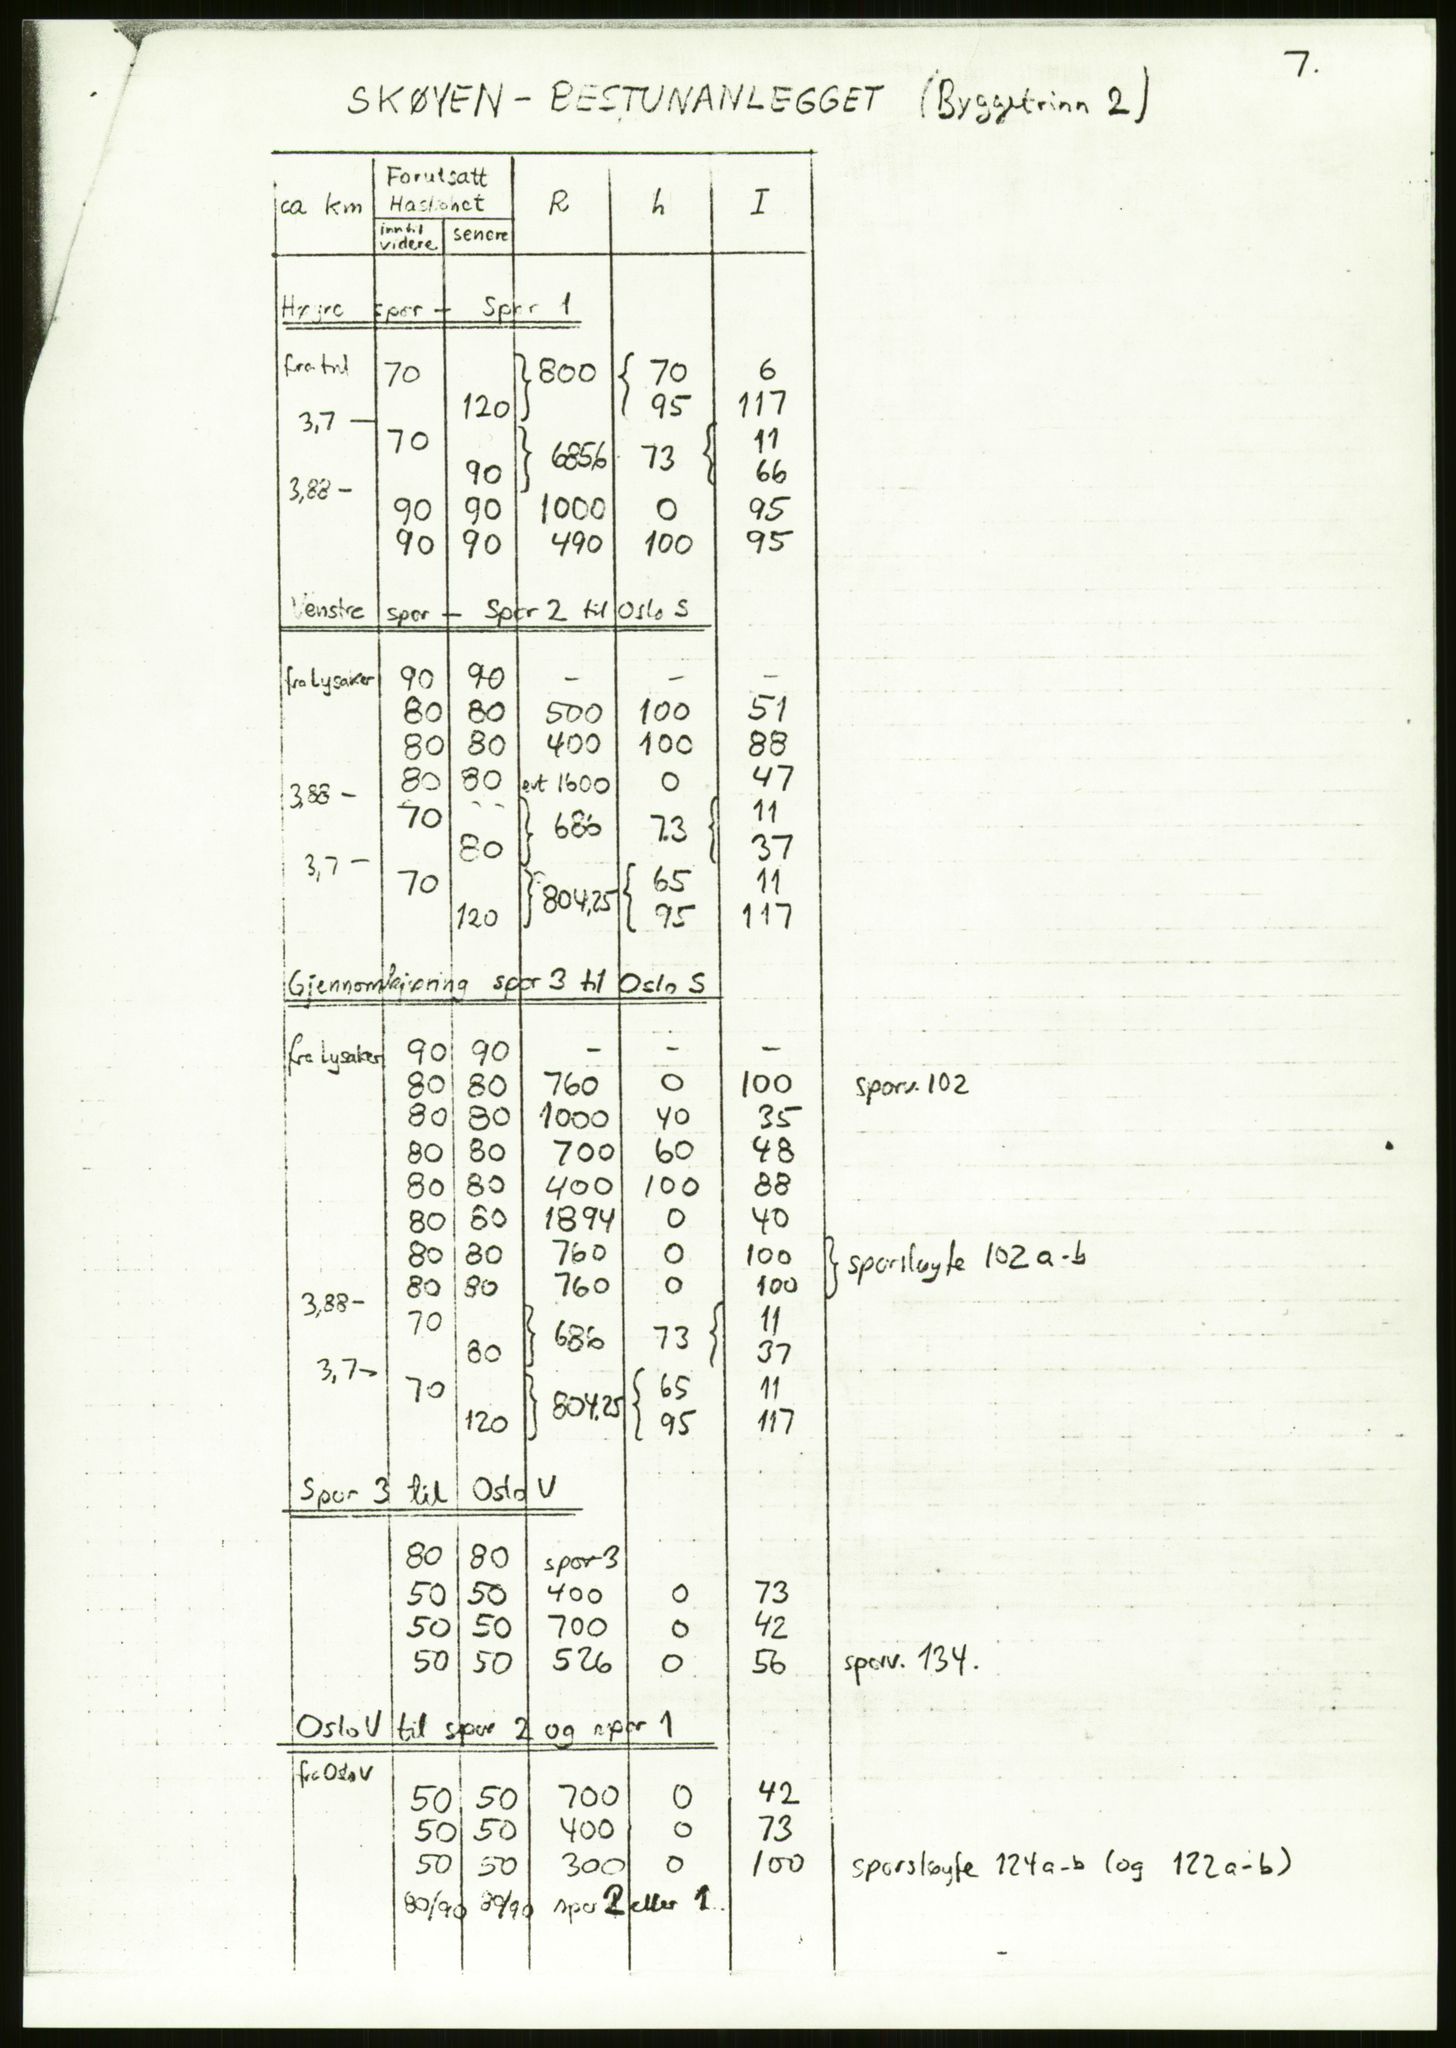 7.
SKØYEN - BESTUNANLEGGET (Byggetrinn 2)
ca km Forutsatt Hastighet R h I
inntil videre senere
Høyre spor - Spor 1
fra tnl 70 800 70 6
120 95 117
3,7 -
70 685,6 73 11
90 66
3,88 -
90 90 1000 0 95
90 90 490 100 95
Venstre spor - Spor 2 til Oslo S
fra Lysaker 90 90 - - -
80 80 500 100 51
80 80 400 100 88
80 80 evt 1600 0 47
3,88 -
70 686 73 11
80 37
3,7 -
70 804,25 65 11
120 95 117
Gjennomkjøring spor 3 til Oslo S
fra Lysaker 90 90 - - -
80 80 760 0 100 sporv. 102
80 80 1000 40 35
80 80 700 60 48
80 80 400 100 88
80 80 1894 0 40
80 80 760 0 100 sporsløyfe 102 a-b
80 80 760 0 100
3,88 -
70 686 73 11
80 37
3,7 -
70 804,25 65 11
120 95 117
Spor 3 til Oslo V
80 80 spor 3
50 50 400 0 73
50 50 700 0 42
50 50 526 0 56 sporv. 134.
Oslo V til spor 2 og spor 1
fra Oslo V
50 50 700 0 42
50 50 400 0 73
50 50 300 0 100 sporsløyfe 124 a-b (og 122 a-b)
80/90 80/90 spor 2 eller 1.